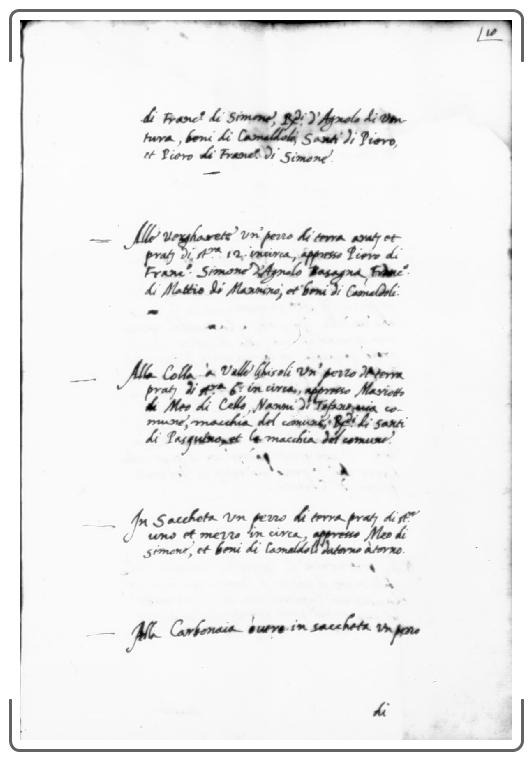 10
di Franc.o di Simone, Rdi. d'Agnolo di Ven-
tura, beni di Camaldoli, Santi di Piero,
et Piero di Franc.o di Simone.
Alle Verghierete un' pezzo di terra arati et
prati di st.ra 12 incirca, appresso Piero di
Franc.o Simone d'Agnolo Franc.o
di Matteo di Mannino, et beni di Camaldoli.
Alla Colla a Valle un' pezzo di terra
prati di st.ra 6 in circa, appresso Mariotto
di Meo di Cello, Nanni di via co-
mune, macchia del comune, Rdi. di Santi
di Pasquino, et la macchia del comune.
In Saccheta un pezzo di terra prati di st.ro
uno et mezzo in circa, appresso Meo di
Simone, et beni di Camaldoli datorno atorno.
Alla Carbonaia overo in saccheta un pezzo
di